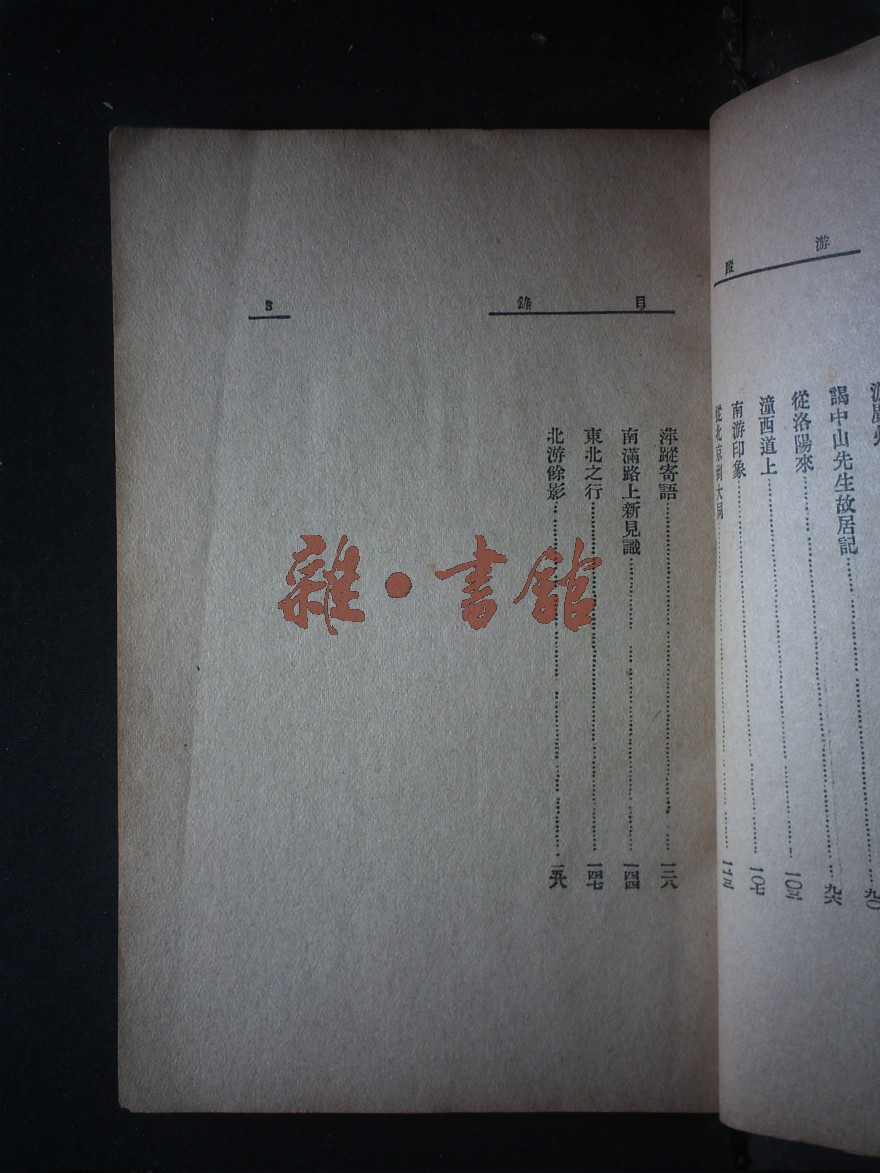 游蹤
謁中山先生故居記 九六
從洛陽來 一〇三
潼西道上 一〇七
南游印象
從北京到大同
目錄
3
萍蹤寄語 一三八
南滿路上新見識 一四四
東北之行 一四七
北游餘影
雜·書館